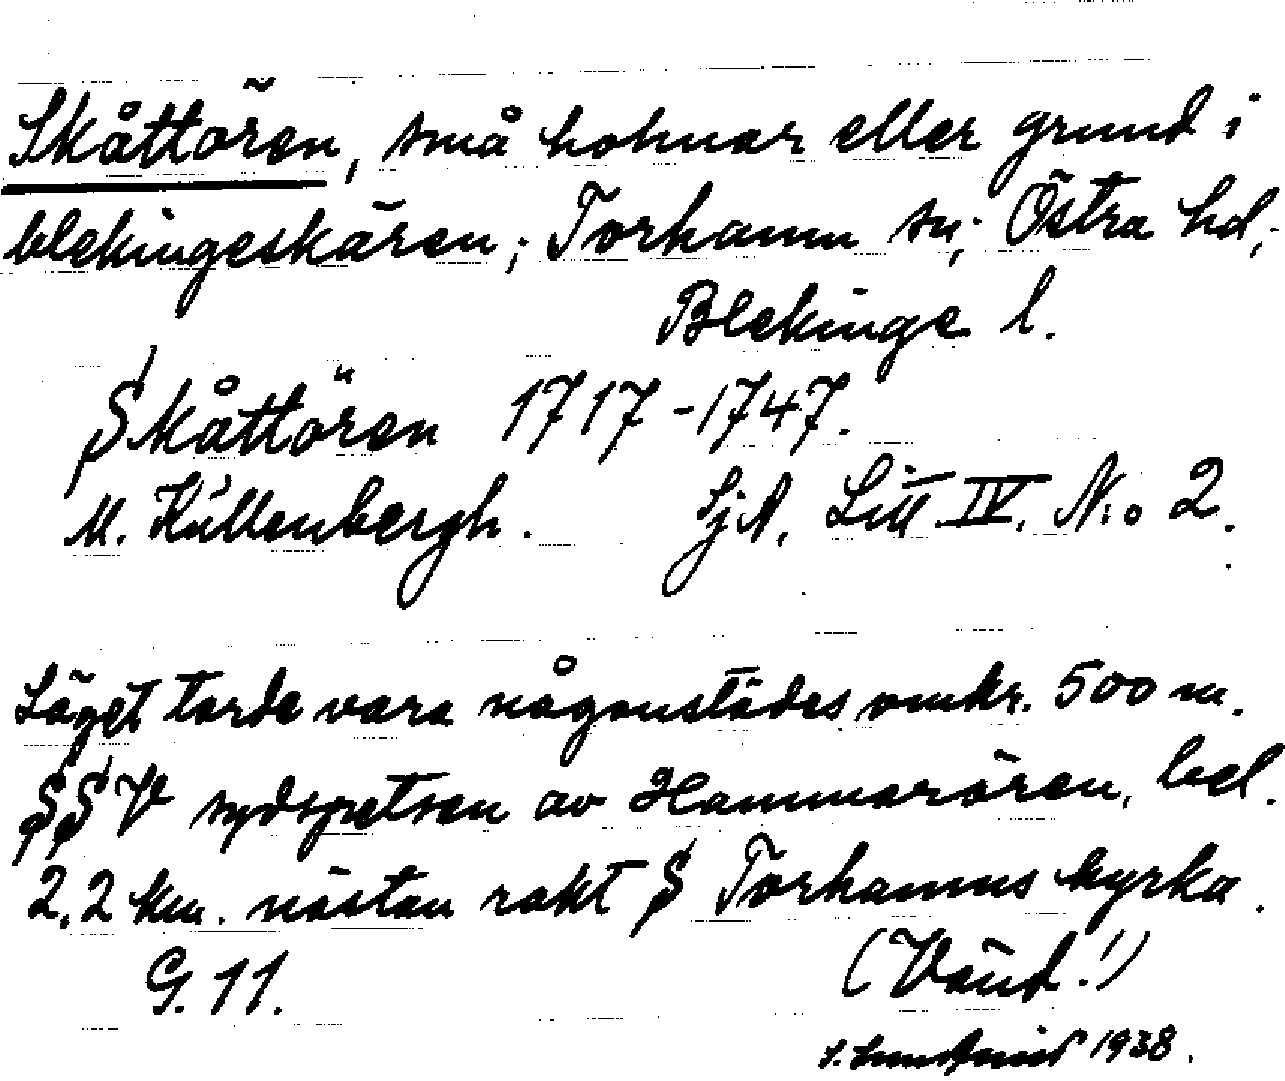 Skåttören, små holmar eller grund i
blekingeskären; Torhamn sn; Östra hd,
Blekinge l.
Skåttören 1717-1747.
M. Küllenbergh. SjA. Litt IV. No 2.
Läget torde vara någonstädes omkr. 500 m.
SSV sydspetsen av Hammarören, bel.
2,2 km. nästan rakt S Torhamns kyrka.
G. 11. (Vänd!)
1938.